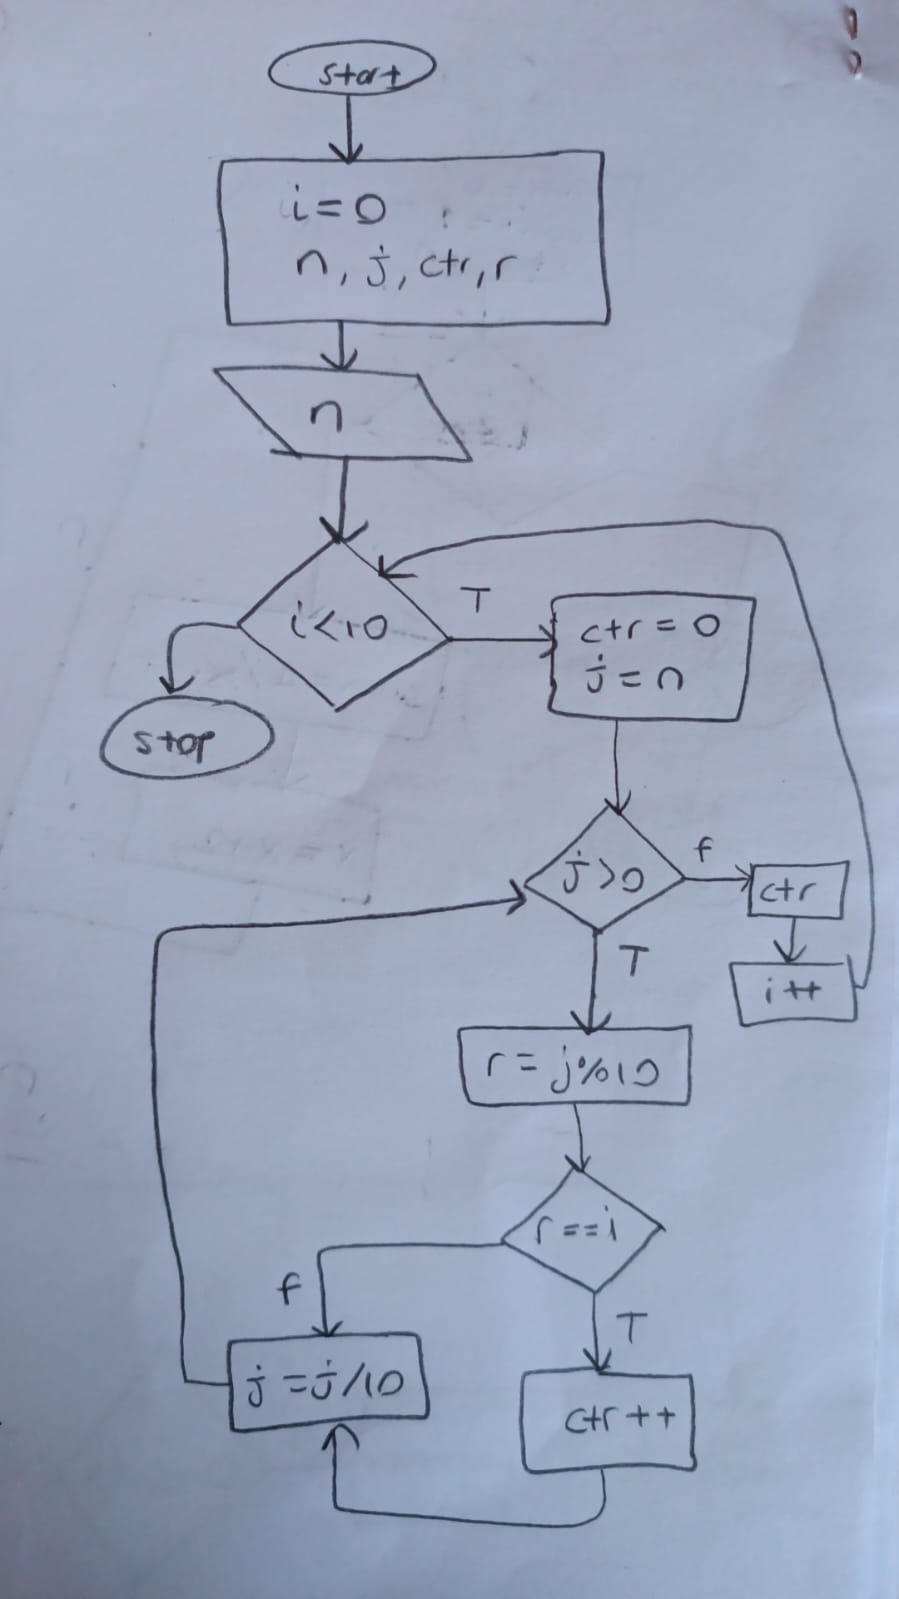 start
i=0
n, j, ctr, r
n
i<10
T
ctr = 0
j = n
stop
j>0
f
ctr
i++
T
r = j%10
r==i
f
T
j =j/10
ctr ++